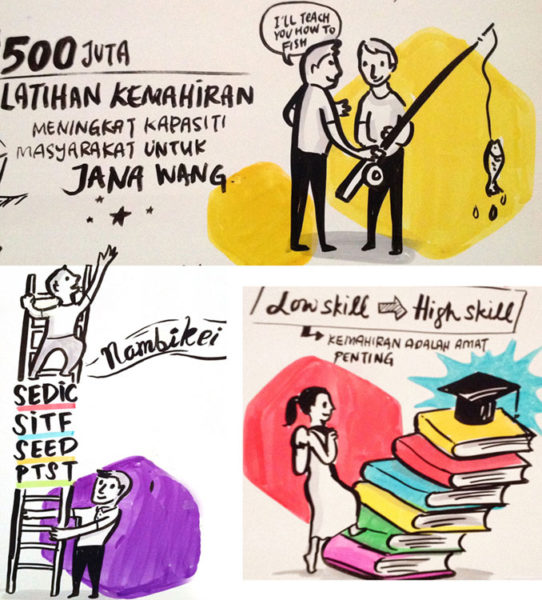 500 JUTA
LATIHAN KEMAHIRAN
MENINGKAT KAPASITI
MASYARAKAT UNTUK
JANA WANG
I'LL TEACH
YOU HOW TO
FISH
Nambikei
SEDIC
SITF
SEED
PTST
Low skill ⇨ High skill
↳ KEMAHIRAN ADALAH AMAT
PENTING